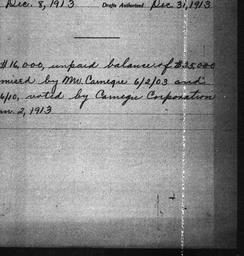 Dec. 8, 1913 Drafts Authorized Dec 31, 1913
$16,000, unpaid balance of $25,000
mised by Mr. Carnegie 6/2/03 and
6/10, voted by Carnegie Corporation
an. 2, 1913